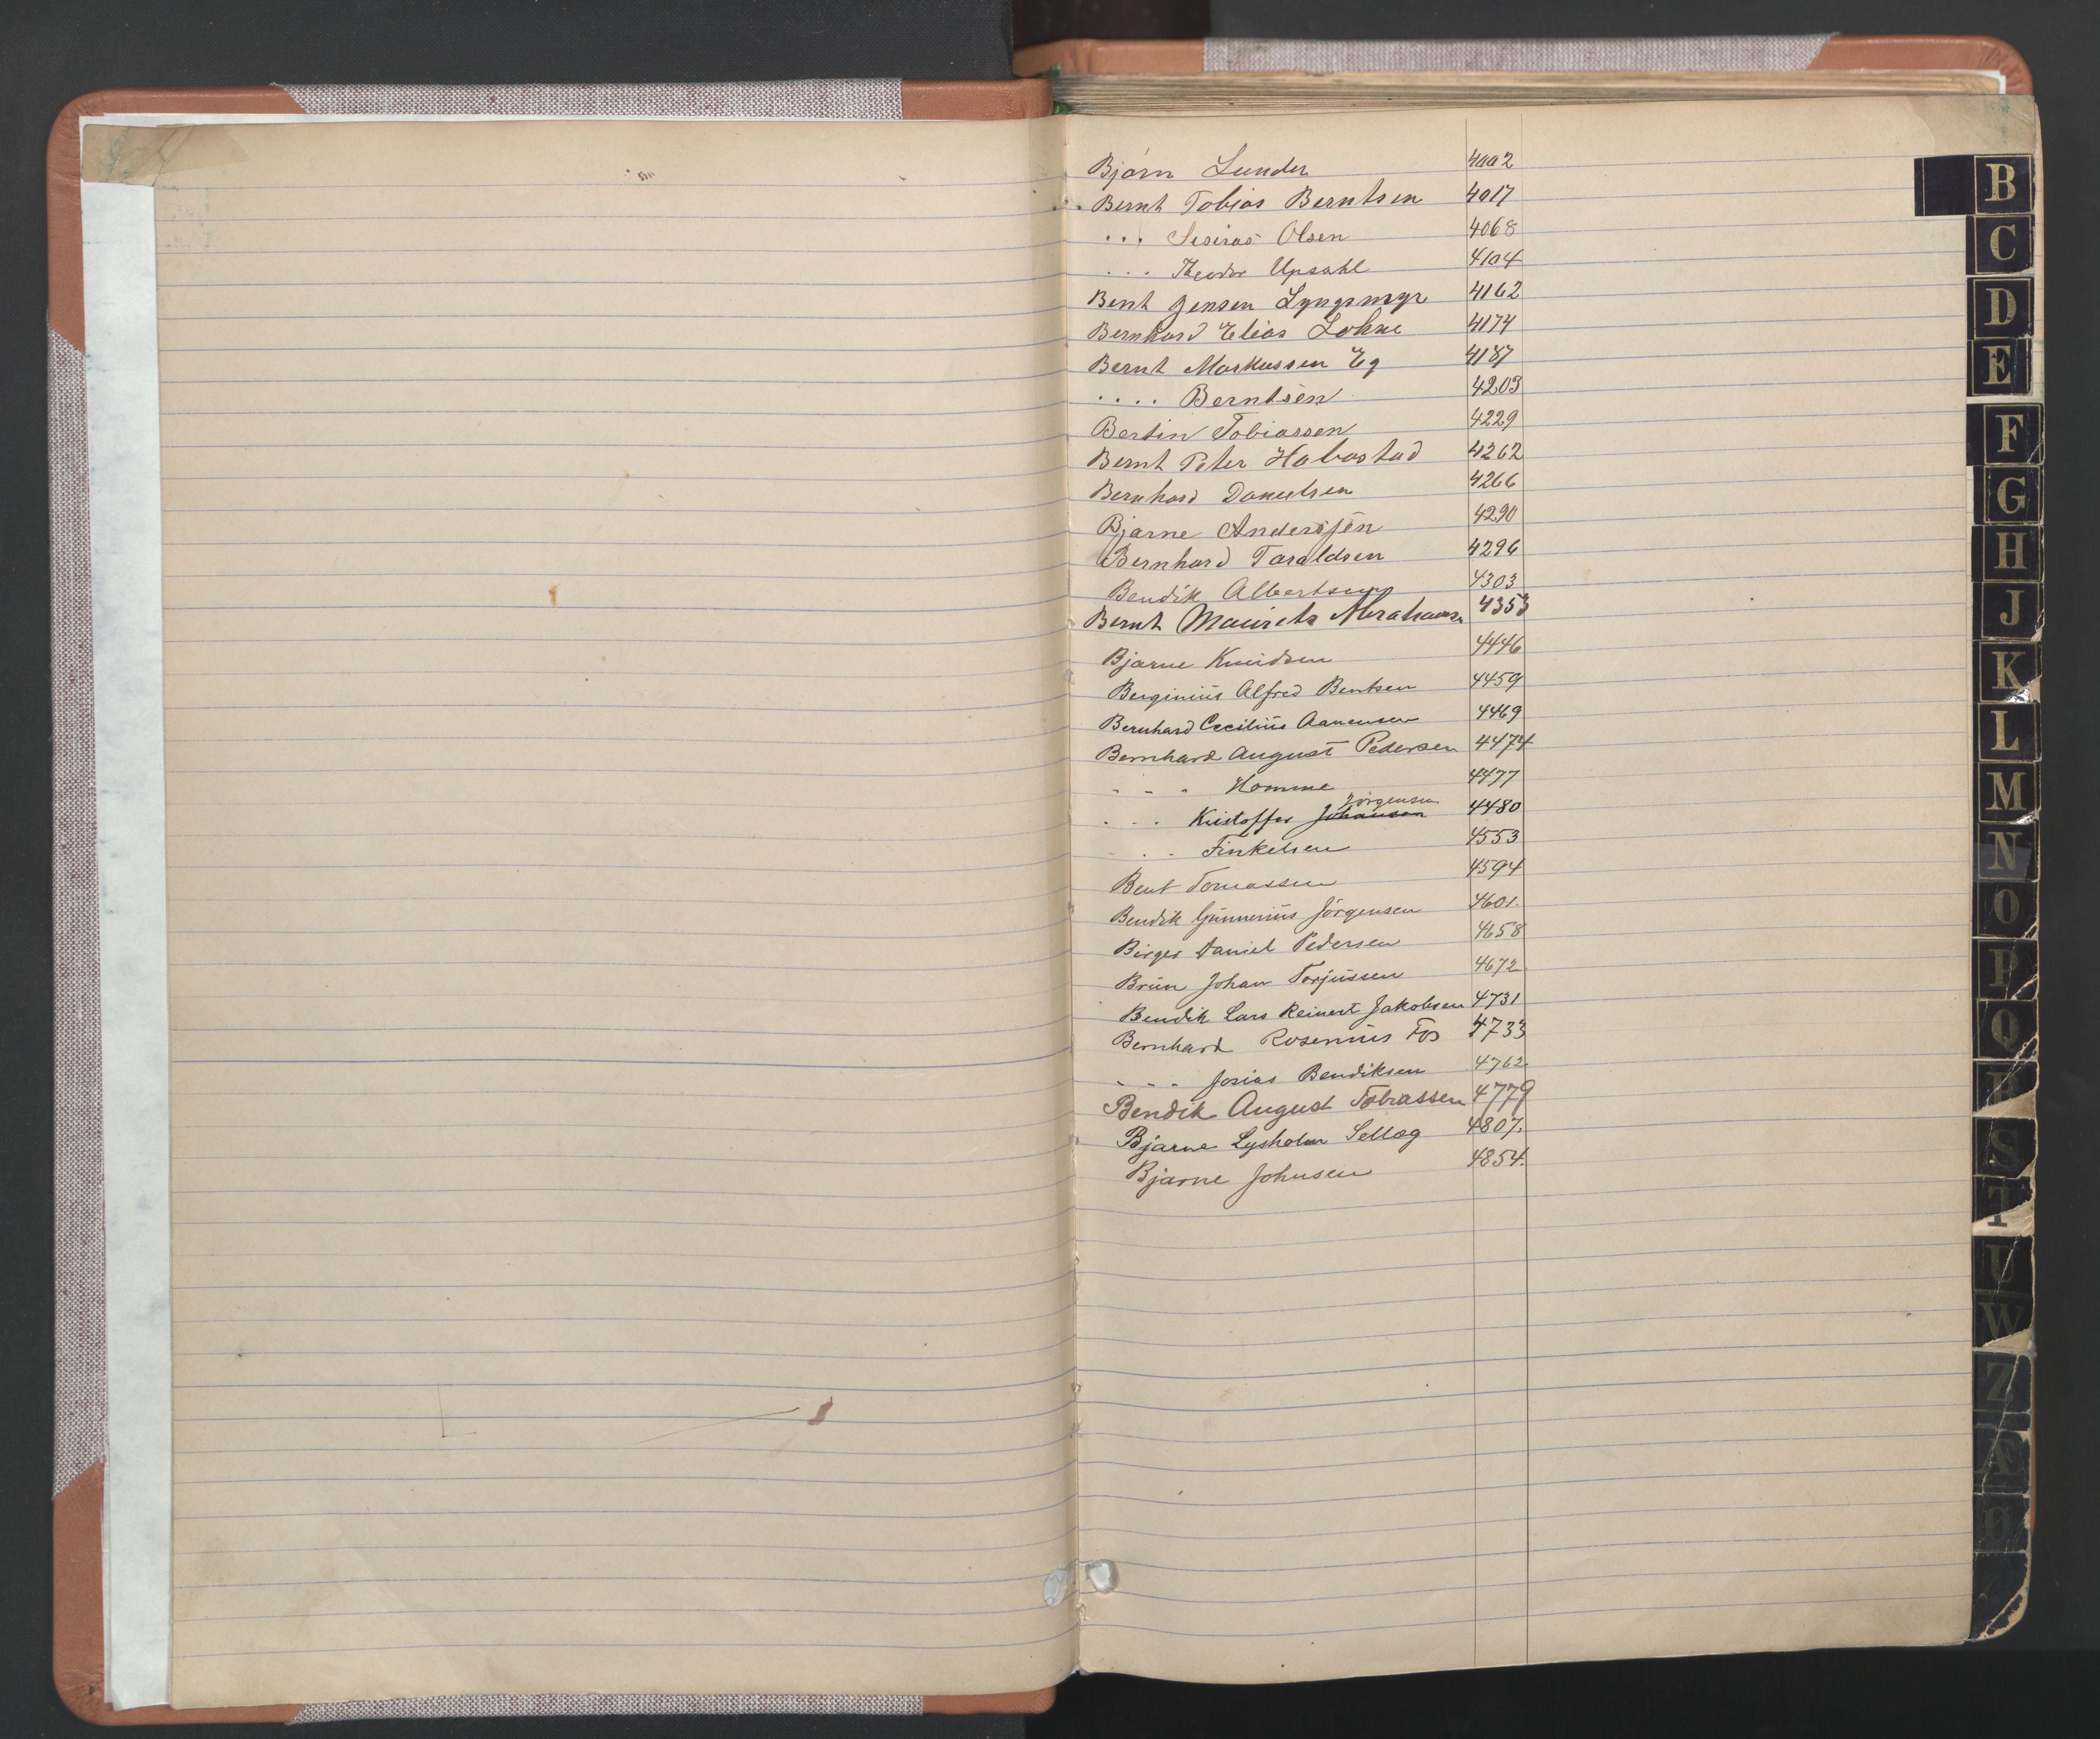 Bjørn Lunder 4002
Bernt Tobias Berntsen 4017
... Olsen 4068
... Theodor Upsahl 4104
Bent Jensen Lyngsmyr 4162
Bernhard Elias Lohne 4174
Bernt Markussen Eg 4187
.... Berntsen 4203
Bertin Tobiassen 4229
Bernt Peter 4262
Bernhard Danielsen 4266
Bjarne Andersen 4290
Bernhard Taraldsen 4296
Bendik Albertsen 4303
Bernt Mauritz Abrahamsen 4353
Bjarne Knudsen 4446
Berginius Alfred Bentsen 4459
Bernhard Cecilius Aanensen 4469
Bernhard August Pedersen 4474
- - - Homme 4477
Jörgensen
. - . Kristoffer Johansen 4480
- . - Finkelsen 4553
Bent Tomassen 4594
Bendik Gunnerius Jörgensen 4601.
Birger Daniel Pedersen 4658
Brün Johan Torjussen 4672.
Bendik Lars Reinert Jakobsen 4731
Bernhard Rosenius Fos 4733
- - - Josias Bendiksen 4762
Bendik August Tobiassen 4779
Bjarne Lysholm Sellæg 4807.
Bjarne Johnsen 4854.
B
C
D
E
F
G
H
J
K
L
M
N
O
P
Q
R
S
T
U
W
Z
Æ
Ø